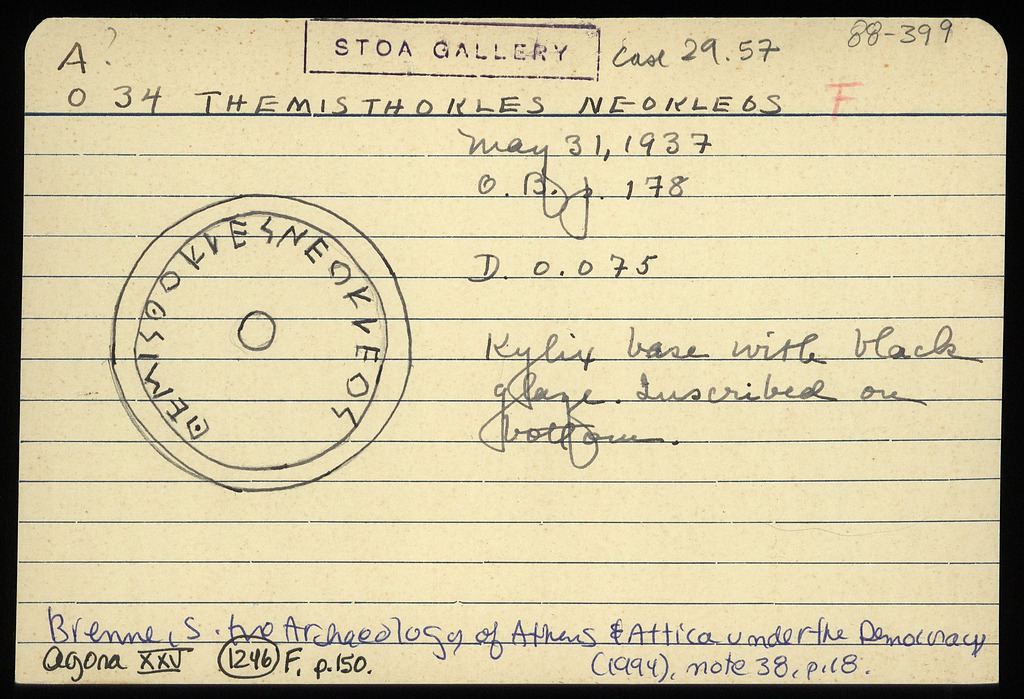 A?
STOA GALLERY
Case 29.57
88-399
O 34 THEMISTHOKLES NEOKLEOS F
May 31, 1937
O.B. p. 178
D. 0.075
ΘEMISΘOKLESNEOKLEOS
Kylix base with black
glaze. Inscribed on
bottom.
Brenne, S. the Archaeology of Athens & Attica under the Democracy
(1994), note 38, p.18.
Agora XXV 1246 F, p.150.